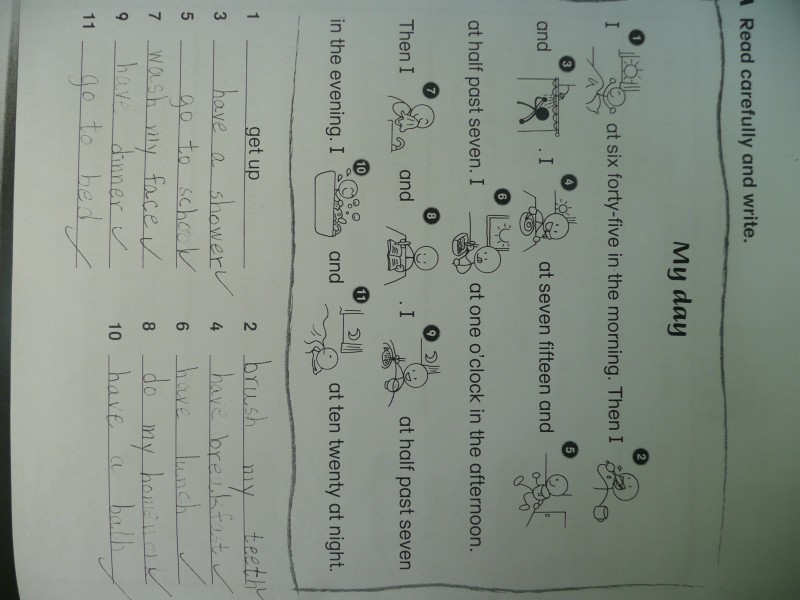 Read carefully and write.
My day
1 2
I at six forty-five in the morning. Then I
3 4 5
and . I at seven fifteen and
6
at half past seven. I at one o'clock in the afternoon.
7 8 9
Then I and . I at half past seven
10 11
in the evening. I and at ten twenty at night.
1 get up 2 brush my teeth
3 have a shower 4 have breakfast
5 go to school 6 have lunch
7 wash my face 8 do my
9 have dinner 10 have a bath
11 go to bed